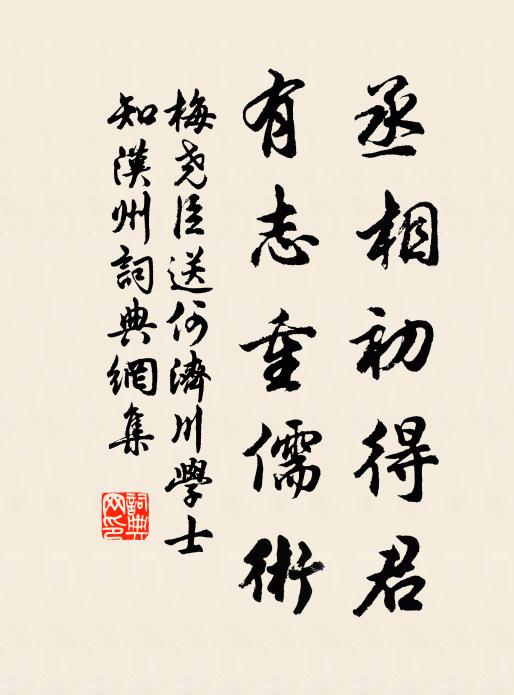 丞相初得君
有志重儒術
梅堯臣送何濟川學士
知漢州詞典網集
詞典网印